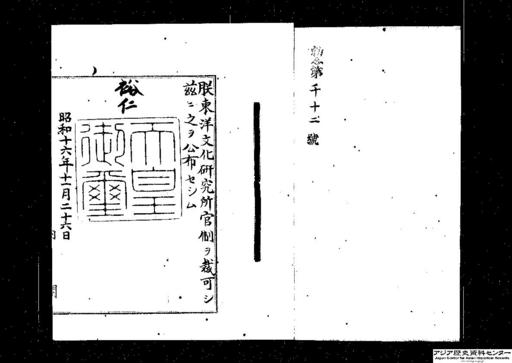 勅令第千十二號
朕東洋文化研究所官制ヲ裁可シ
茲ニ之ヲ公布セシム
裕仁
天皇御璽
昭和十六年十一月二十六日
アジア歴史資料センター
Japan Center for Asian Historical Records